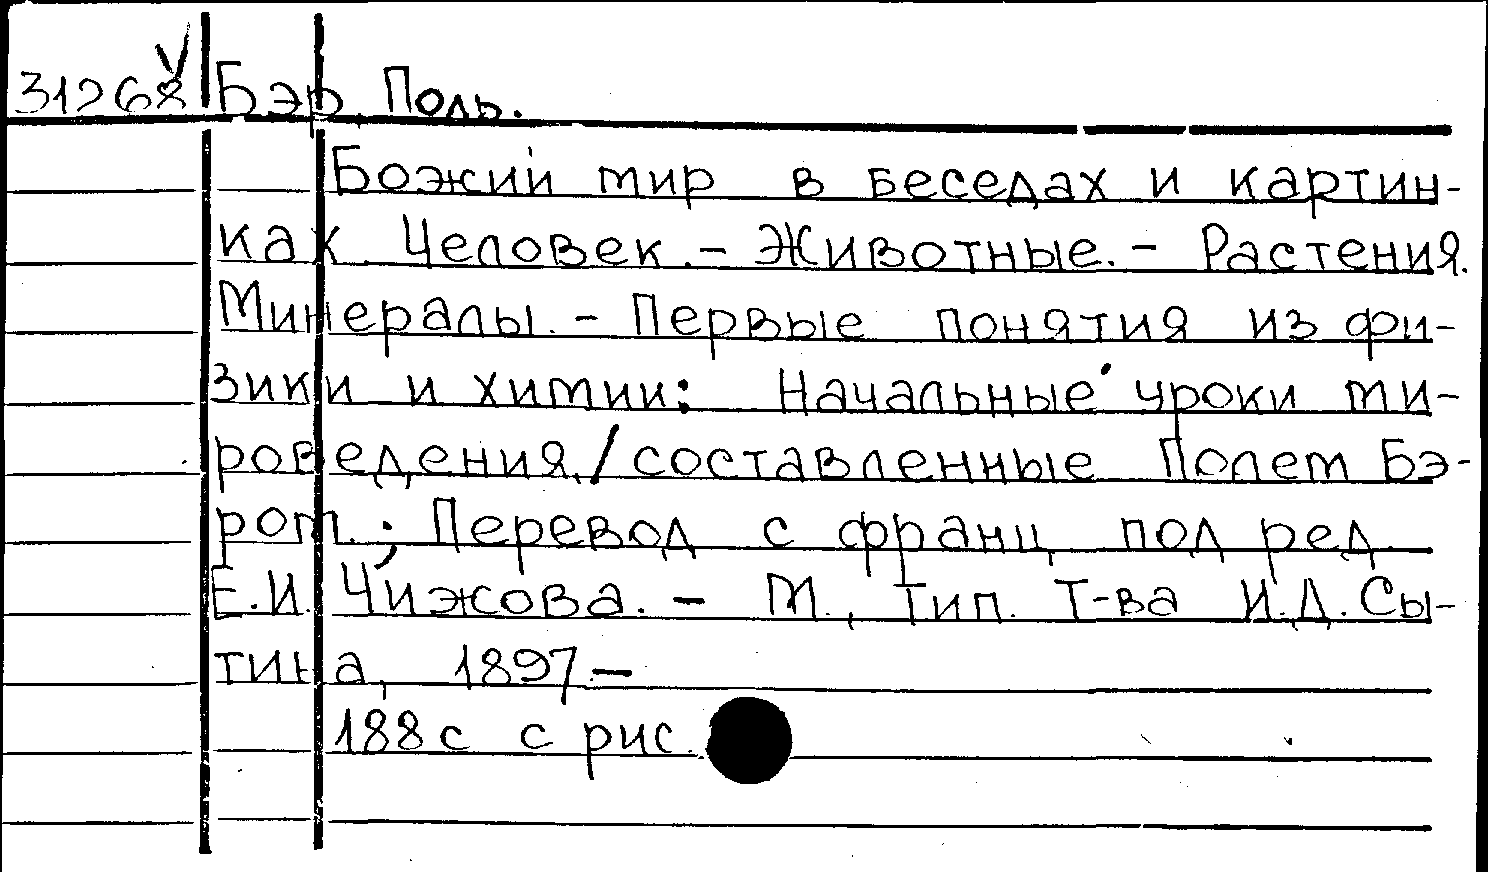 31268 Бэр Поль.
Божий мир в беседах и картин-
ках. Человек. - Животные. - Растения.
Минералы. - Первые понятия из фи-
зики и химии: Начальные уроки ми-
роведения / составленные Полем Бэ-
ром. ; Перевод с франц под ред
Е.И. Чижова. - М., Тип. Т-ва И.Д. Сы-
тина, 1897. -
188 с с рис.